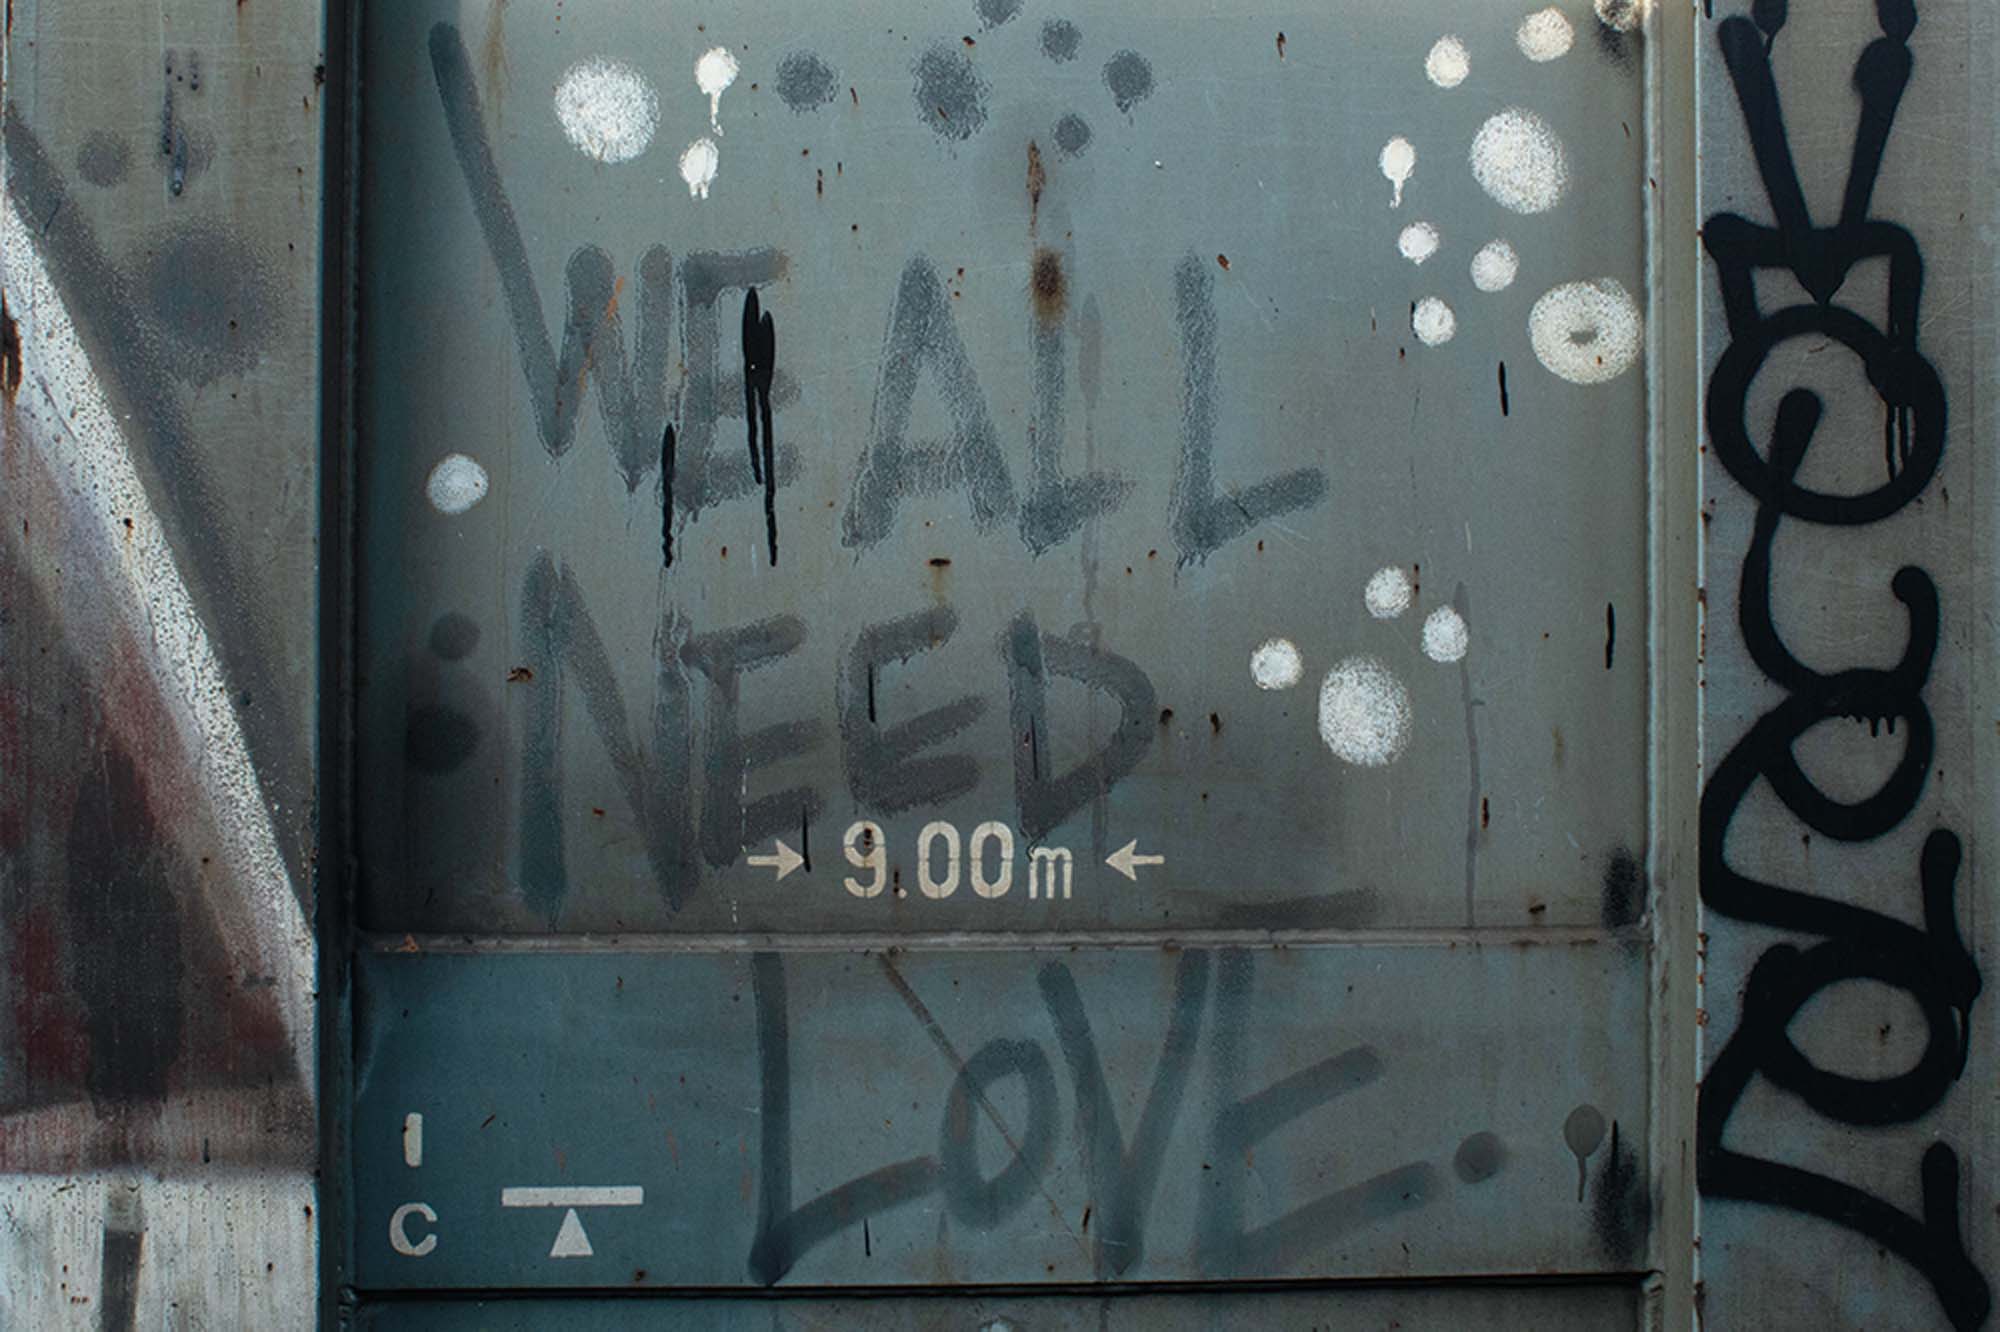 WE ALL
NEED
→ 9.00m ←
LOVE.
I
C